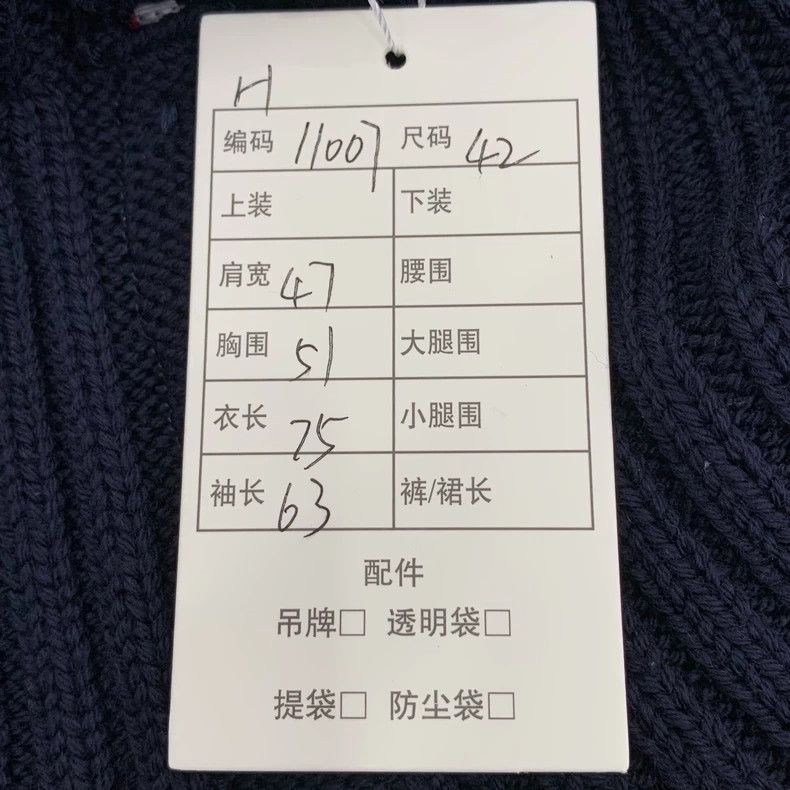 H
编码 11007 尺码 42
上装 下装
肩宽 47 腰围
胸围 51 大腿围
衣长 75 小腿围
袖长 63 裤/裙长
配件
吊牌□ 透明袋□
提袋□ 防尘袋□